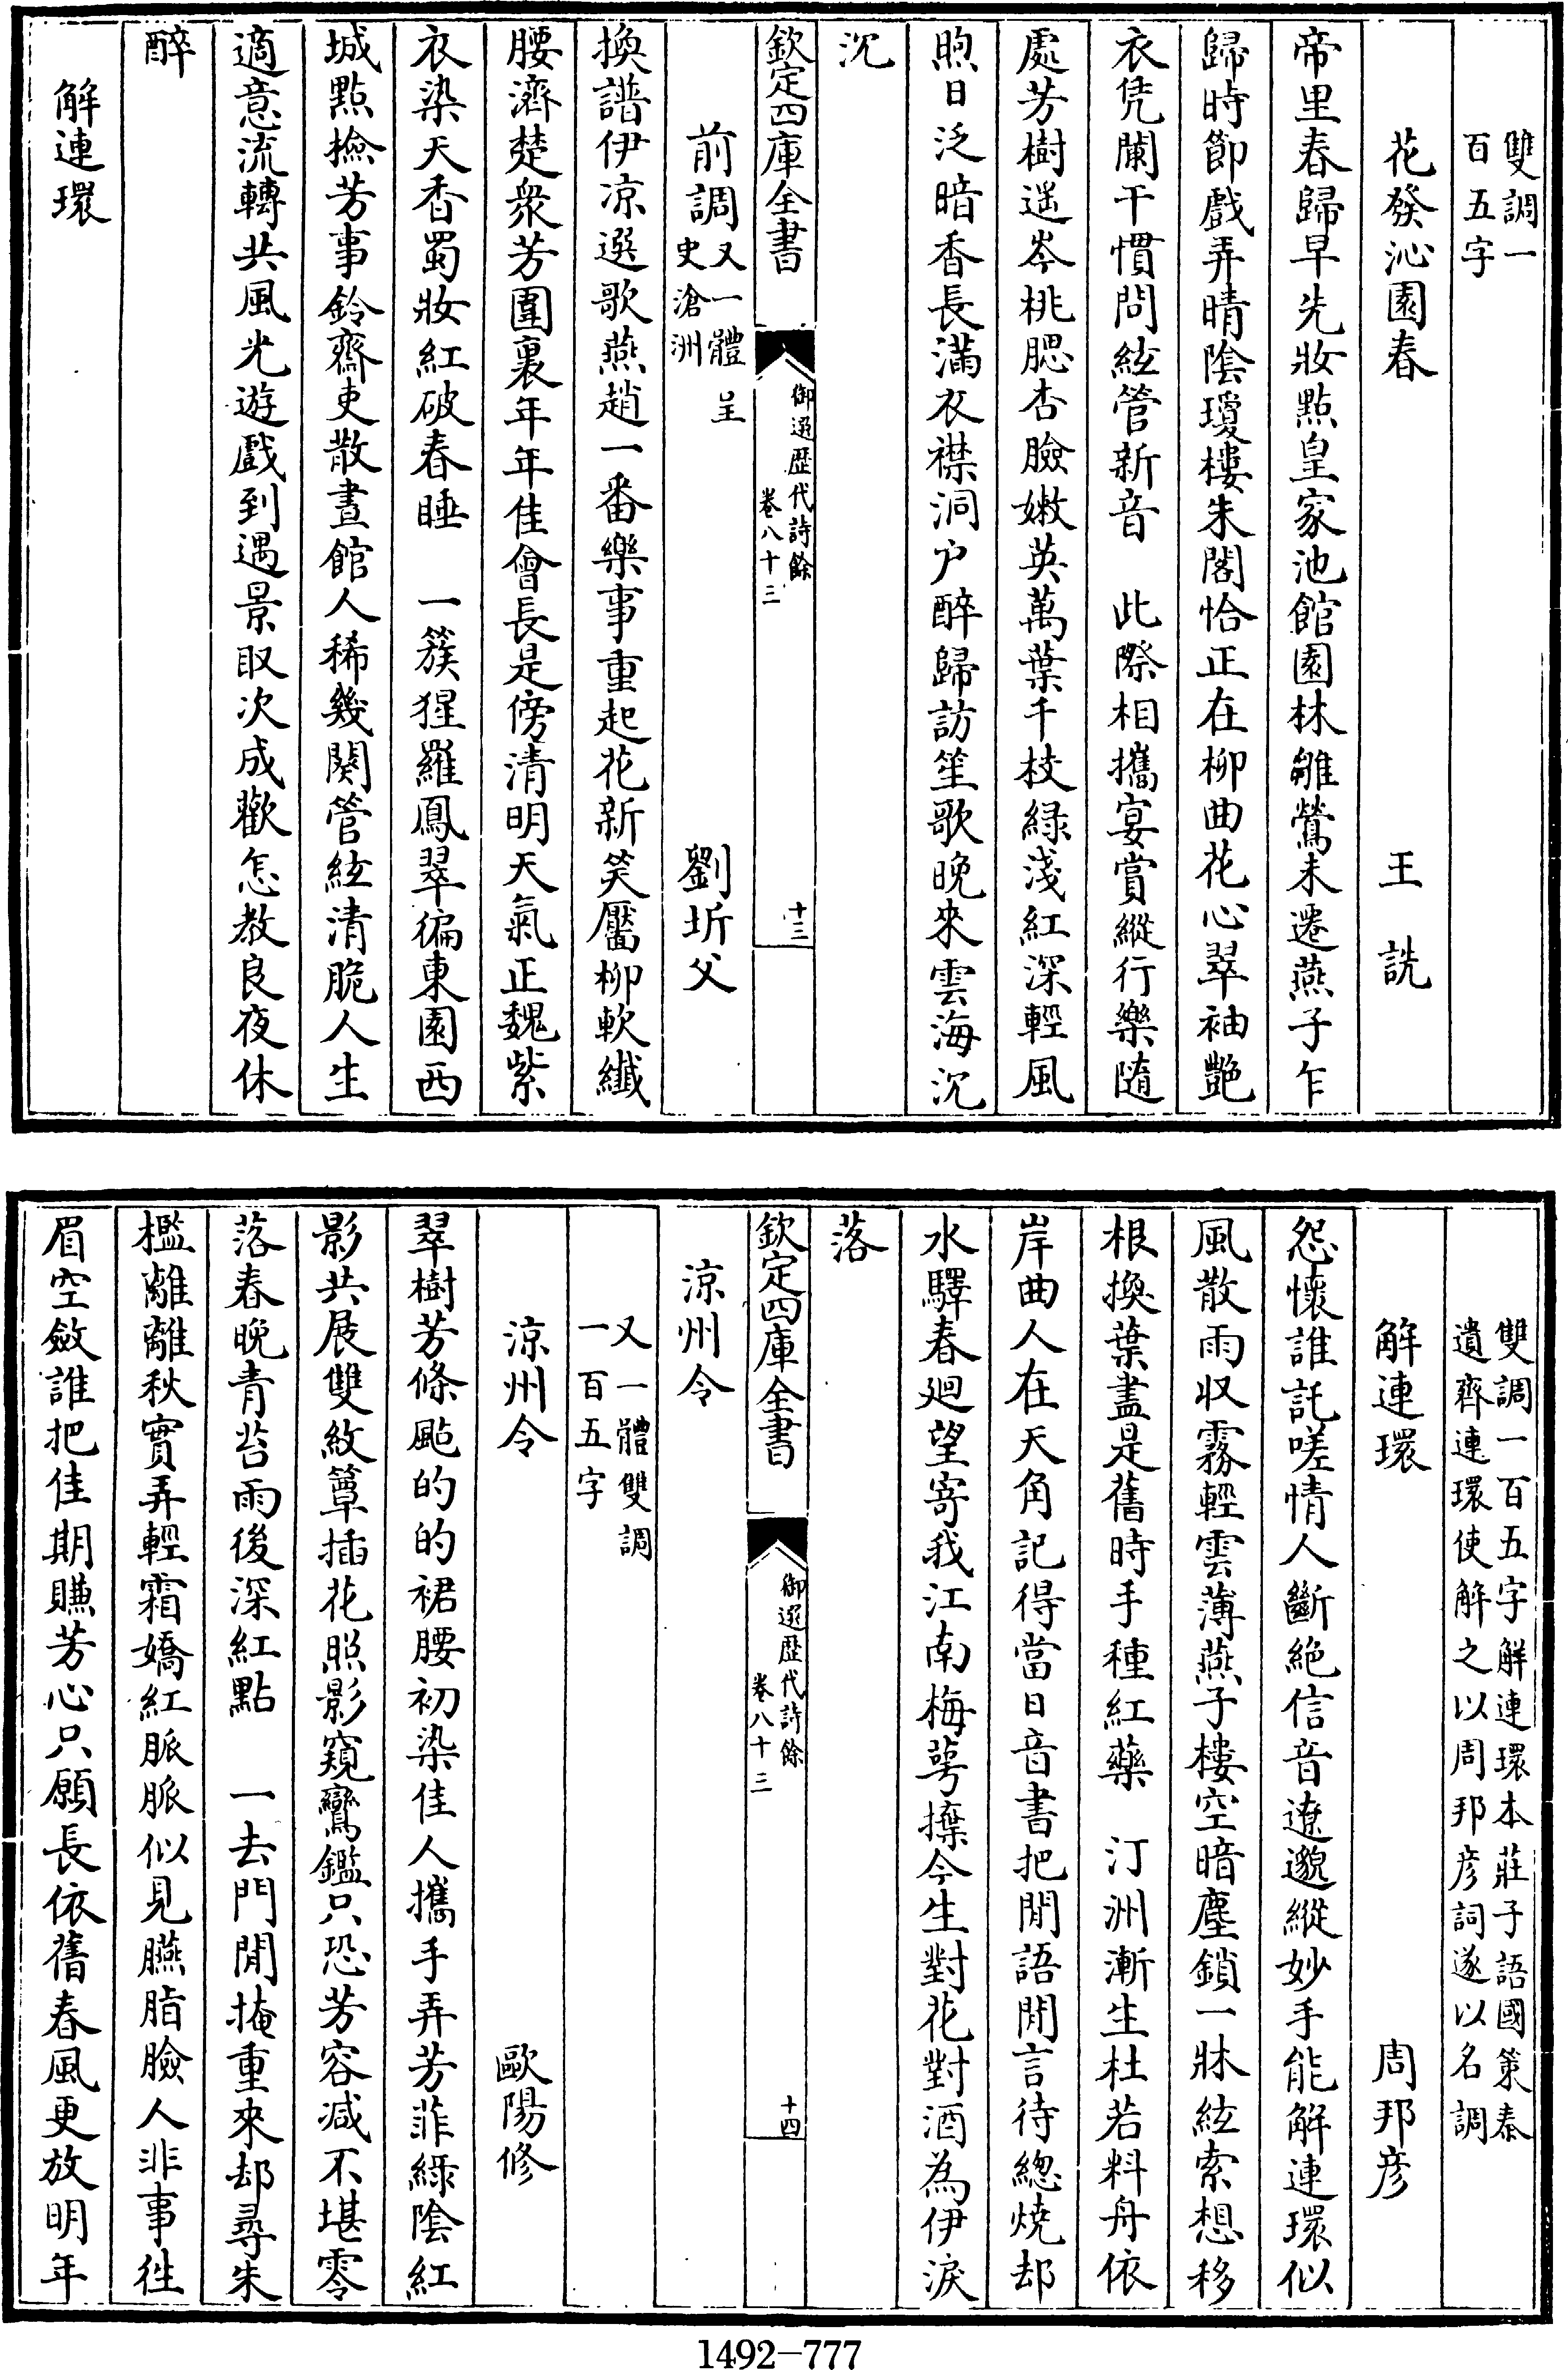 雙調一
百五字
花發沁園春　王詵
帝里春歸早先妝點皇家池館園林雛鶯未遷燕子乍
歸時節戲弄晴陰瓊樓朱閣恰正在柳曲花心翠袖艷
衣凭闌干慣問絃管新音　此際相攜宴賞縱行樂隨
處芳樹遥岑桃腮杏臉嫩英萬葉千枝緑淺紅深輕風
煦日泛暗香長滿衣襟洞户醉歸訪笙歌晚來雲海沉
沉
欽定四庫全書
御選歴代詩餘
卷八十三
十三
前調又一體　呈
史滄洲　劉圻父
換譜伊凉選歌燕趙一番樂事重起花新笑靨柳軟纖
腰濟楚衆芳圍裏年年佳會長是傍清明天氣正魏紫
衣染天香蜀妝紅破春睡　一簇猩羅鳳翠徧東園西
城點撿芳事鈴齋吏散晝館人稀幾闋管絃清脆人生
適意流轉共風光遊戲到遇景取次成歡怎教良夜休
醉
解連環
雙調一百五字解連環本莊子語國策秦
遺齊連環使解之以周邦彦詞遂以名調
解連環　周邦彦
怨懷誰託嗟情人斷絶信音遼邈縱妙手能解連環似
風散雨収霧輕雲薄燕子樓空暗塵鎖一牀絃索想移
根換葉盡是舊時手種紅藥　汀洲漸生杜若料舟依
岸曲人在天角記得當日音書把閒語閒言待總燒却
水驛春廻望寄我江南梅萼㩼今生對花對酒為伊淚
落
欽定四庫全書
御選歴代詩餘
卷八十三
十四
涼州令
又一體雙調
一百五字
涼州令　歐陽修
翠樹芳條颭的的裙腰初染佳人攜手弄芳菲緑陰紅
影共展雙紋簟插花照影窺鸞鑑只恐芳容减不堪零
落春晚青苔雨後深紅點　一去門閒掩重來却尋朱
檻離離秋實弄輕霜嬌紅脈脈似見臙脂臉人非事往
眉空斂誰把佳期賺芳心只願長依舊春風更放明年
1492—777